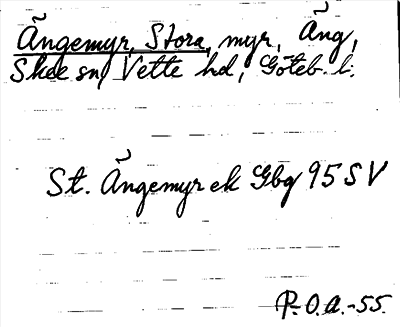 Ängemyr, Stora, myr, Äng,
Skee sn, Vette hd, Göteb. l.
St. Ängemyr ek Gbg 95 SV
P.O.A.-55.